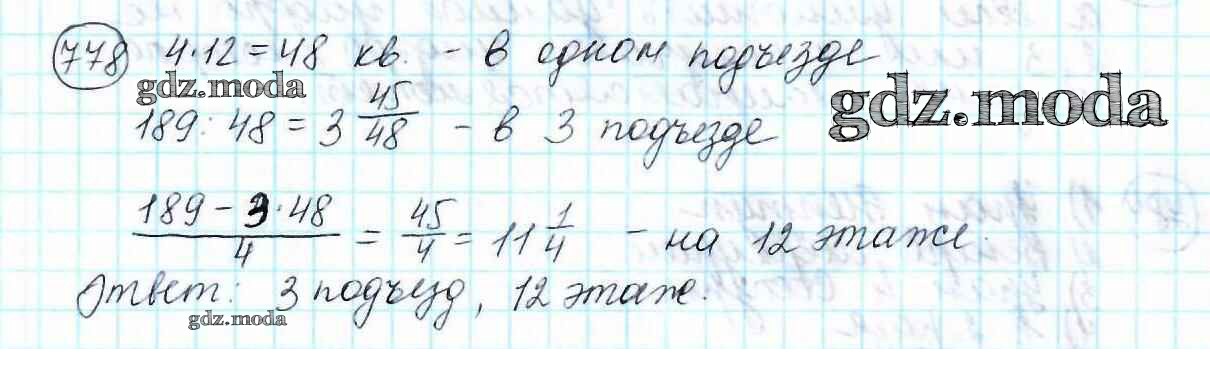 778 4·12=48 кв. - в одном подъезде
gdz.moda
189:48=3 45/48 - в 3 подъезде
gdz.moda
(189-3·48)/4 = 45/4 = 11 1/4 - на 12 этаже.
Ответ: 3 подъезд, 12 этаж.
gdz.moda